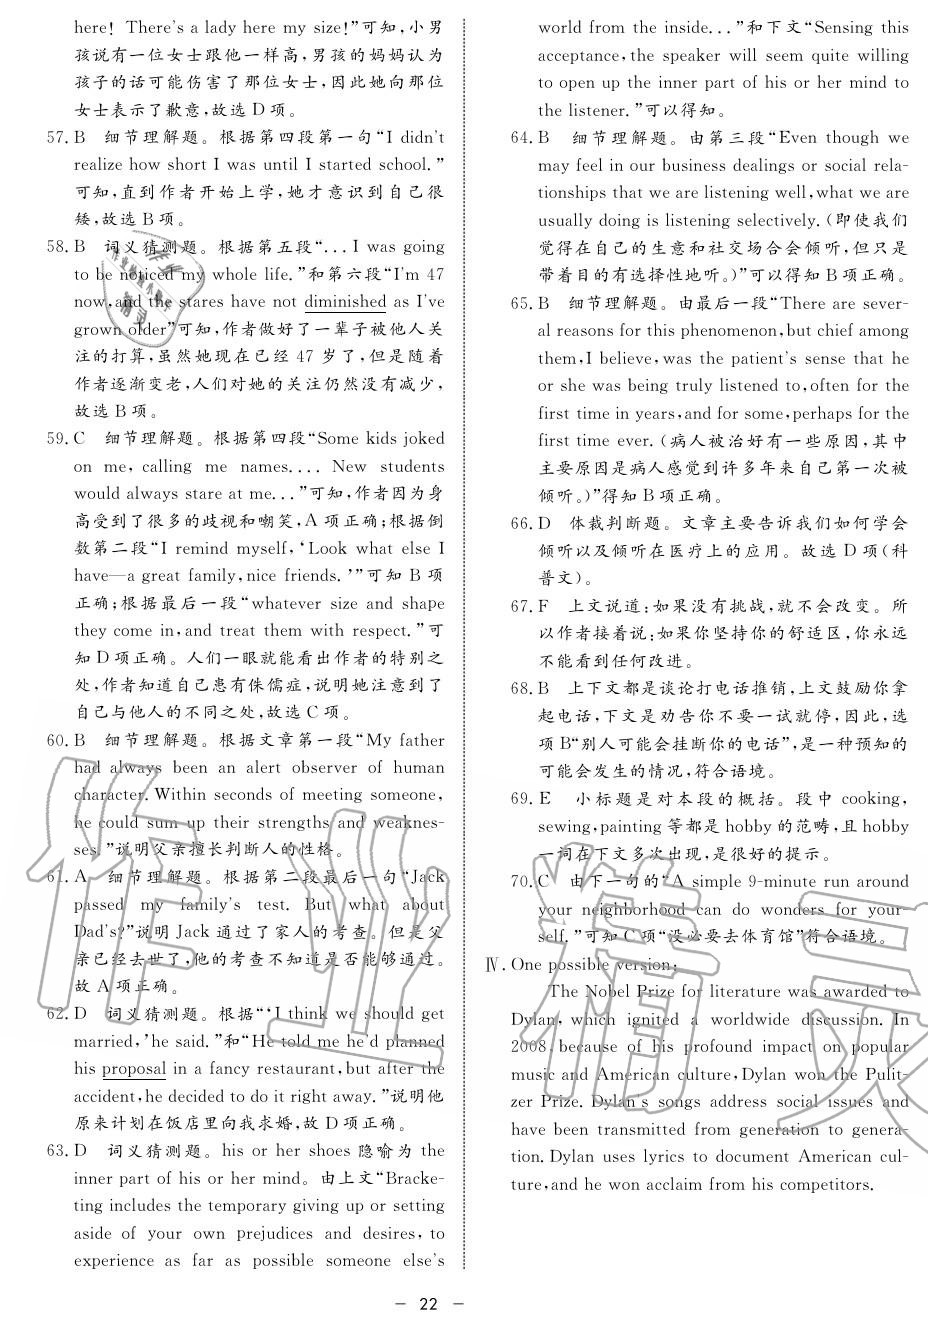 here! There's a lady here my size!”可知,小男
孩说有一位女士跟他一样高,男孩的妈妈认为
孩子的话可能伤害了那位女士,因此她向那位
女士表示了歉意,故选 D 项。
57. B 细节理解题。根据第四段第一句“I didn't
realize how short I was until I started school.”
可知,直到作者开始上学,她才意识到自己很
矮,故选 B 项。
58. B 词义猜测题。根据第五段“...I was going
to be noticed my whole life.”和第六段“I'm 47
now,and the stares have not diminished as I've
grown older”可知,作者做好了一辈子被他人关
注的打算,虽然她现在已经 47 岁了,但是随着
作者逐渐变老,人们对她的关注仍然没有减少,
故选 B 项。
59. C 细节理解题。根据第四段“Some kids joked
on me, calling me names.... New students
would always stare at me...”可知,作者因为身
高受到了很多的歧视和嘲笑,A 项正确;根据倒
数第二段“I remind myself,‘Look what else I
have—a great family,nice friends.’”可知 B 项
正确;根据最后一段“whatever size and shape
they come in,and treat them with respect.”可
知 D 项正确。人们一眼就能看出作者的特别之
处,作者知道自己患有侏儒症,说明她注意到了
自己与他人的不同之处,故选 C 项。
60. B 细节理解题。根据文章第一段“My father
had always been an alert observer of human
character. Within seconds of meeting someone,
he could sum up their strengths and weaknes-
ses.”说明父亲擅长判断人的性格。
61. A 细节理解题。根据第二段最后一句“Jack
passed my family's test. But what about
Dad's?”说明 Jack 通过了家人的考查。但是父
亲已经去世了,他的考查不知道是否能够通过。
故 A 项正确。
62. D 词义猜测题。根据“‘I think we should get
married,’he said.”和“He told me he'd planned
his proposal in a fancy restaurant,but after the
accident,he decided to do it right away.”说明他
原来计划在饭店里向我求婚,故 D 项正确。
63. D 词义猜测题。his or her shoes 隐喻为 the
inner part of his or her mind。由上文“Bracke-
ting includes the temporary giving up or setting
aside of your own prejudices and desires, to
experience as far as possible someone else's
world from the inside...”和下文“Sensing this
acceptance,the speaker will seem quite willing
to open up the inner part of his or her mind to
the listener.”可以得知。
64. B 细节理解题。由第三段“Even though we
may feel in our business dealings or social rela-
tionships that we are listening well,what we are
usually doing is listening selectively.(即使我们
觉得在自己的生意和社交场合会倾听,但只是
带着目的有选择性地听。)”可以得知 B 项正确。
65. B 细节理解题。由最后一段“There are sever-
al reasons for this phenomenon,but chief among
them,I believe,was the patient's sense that he
or she was being truly listened to,often for the
first time in years,and for some,perhaps for the
first time ever.(病人被治好有一些原因,其中
主要原因是病人感觉到许多年来自己第一次被
倾听。)”得知 B 项正确。
66. D 体裁判断题。文章主要告诉我们如何学会
倾听以及倾听在医疗上的应用。故选 D 项(科
普文)。
67. F 上文说道:如果没有挑战,就不会改变。所
以作者接着说:如果你坚持你的舒适区,你永远
不能看到任何改进。
68. B 上下文都是谈论打电话推销,上文鼓励你拿
起电话,下文是劝告你不要一试就停,因此,选
项 B“别人可能会挂断你的电话”,是一种预知的
可能会发生的情况,符合语境。
69. E 小标题是对本段的概括。段中 cooking,
sewing,painting 等都是 hobby 的范畴,且 hobby
一词在下文多次出现,是很好的提示。
70. C 由下一句的“A simple 9-minute run around
your neighborhood can do wonders for your-
self.”可知 C 项“没必要去体育馆”符合语境。
Ⅳ. One possible version:
The Nobel Prize for literature was awarded to
Dylan, which ignited a worldwide discussion. In
2008, because of his profound impact on popular
music and American culture,Dylan won the Pulit-
zer Prize. Dylan's songs address social issues and
have been transmitted from generation to genera-
tion. Dylan uses lyrics to document American cul-
ture,and he won acclaim from his competitors.
— 22 —
作业精灵